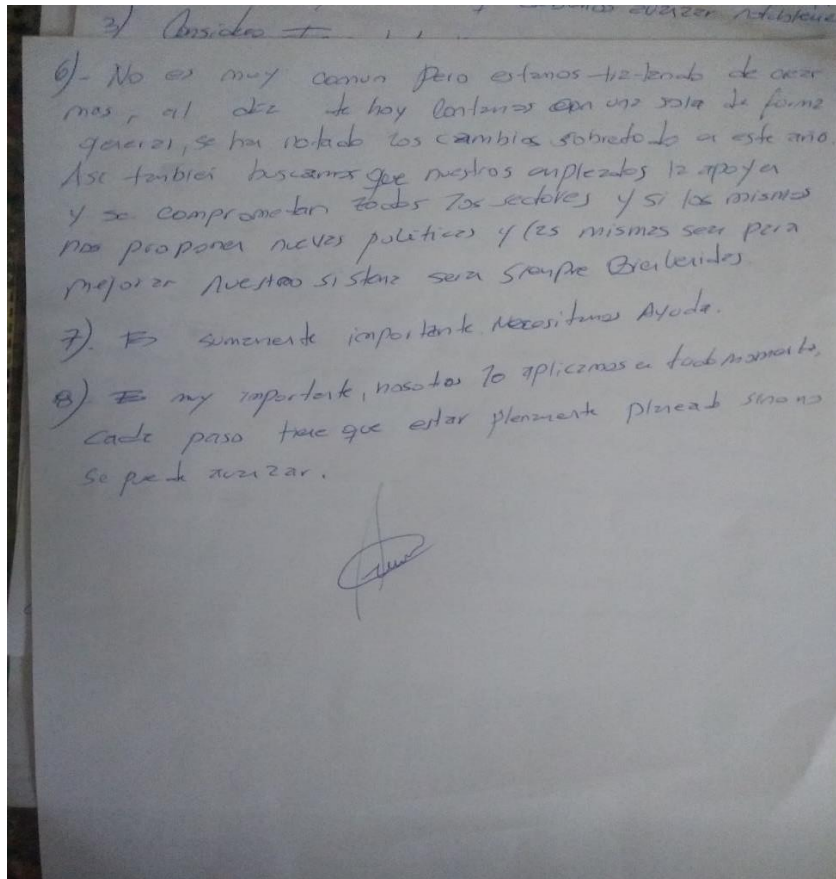 3) Considero
avanzar notablemente
6)- No es muy comun pero estamos tratando de crear
mas, al diz de hoy contamos con una sola de forma
general, se han notado los cambios sobretodo en este año.
Asi tambien buscamos que nuestros empleados la apoyen
y se comprometan todos los sectores y si los mismos
nos proponen nuevas politicas y las mismas sean para
mejorar nuestro sistema seran siempre Bienvenidos
7). Es sumamente importante. Necesitamos Ayuda.
8) Es muy importante, nosotros lo aplicamos en todo momento,
cada paso tiene que estar plenamente planeado sino no
se puede avanzar.